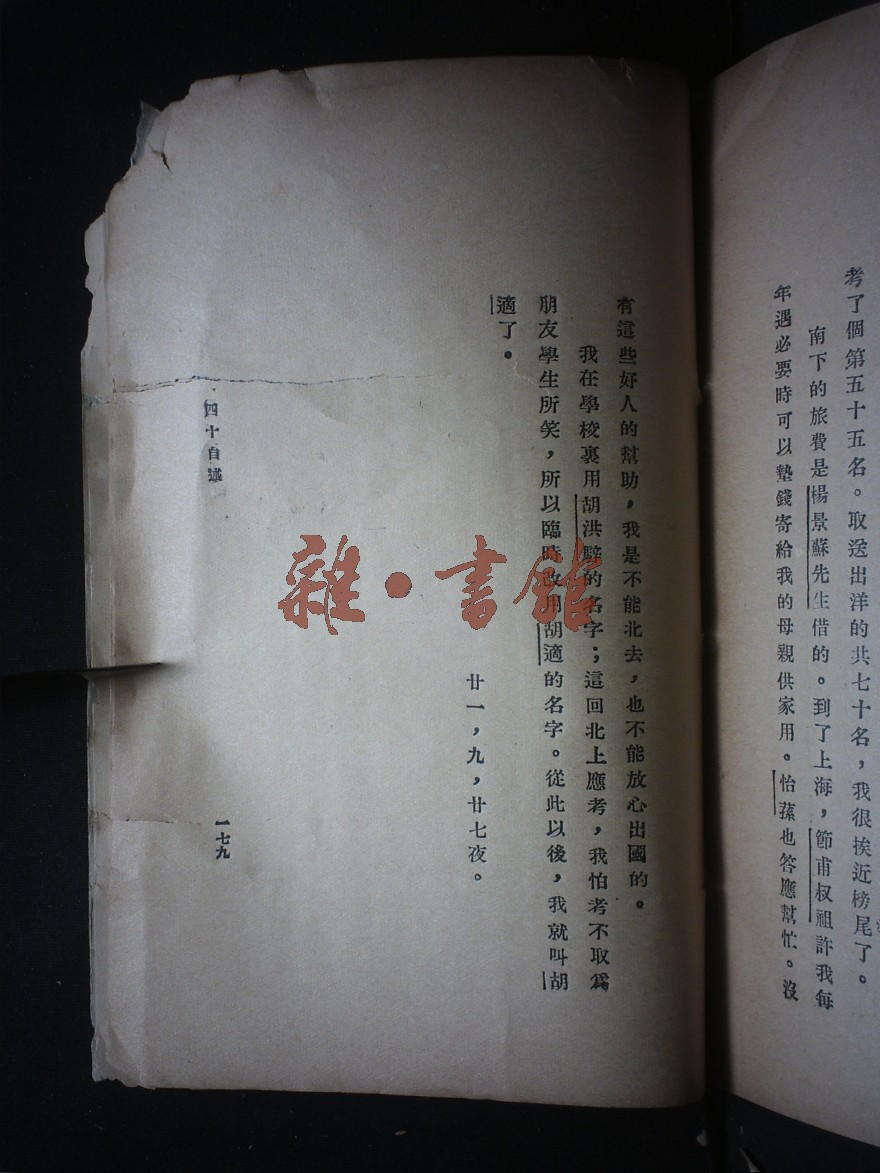 考了個第五十五名。取送出洋的共七十名，我很挨近榜尾了。
南下的旅費是楊景蘇先生借的。到了上海，節甫叔祖許我每
年遇必要時可以墊錢寄給我的母親供家用。怡蓀也答應幫忙。沒
有這些好人的幫助，我是不能北去，也不能放心出國的。
我在學校裏用胡洪騂的名字；這回北上應考，我怕考不取爲
朋友學生所笑，所以臨時改用胡適的名字。從此以後，我就叫胡
適了。
廿一，九，廿七夜。
四十自述
一七九
雜·書館